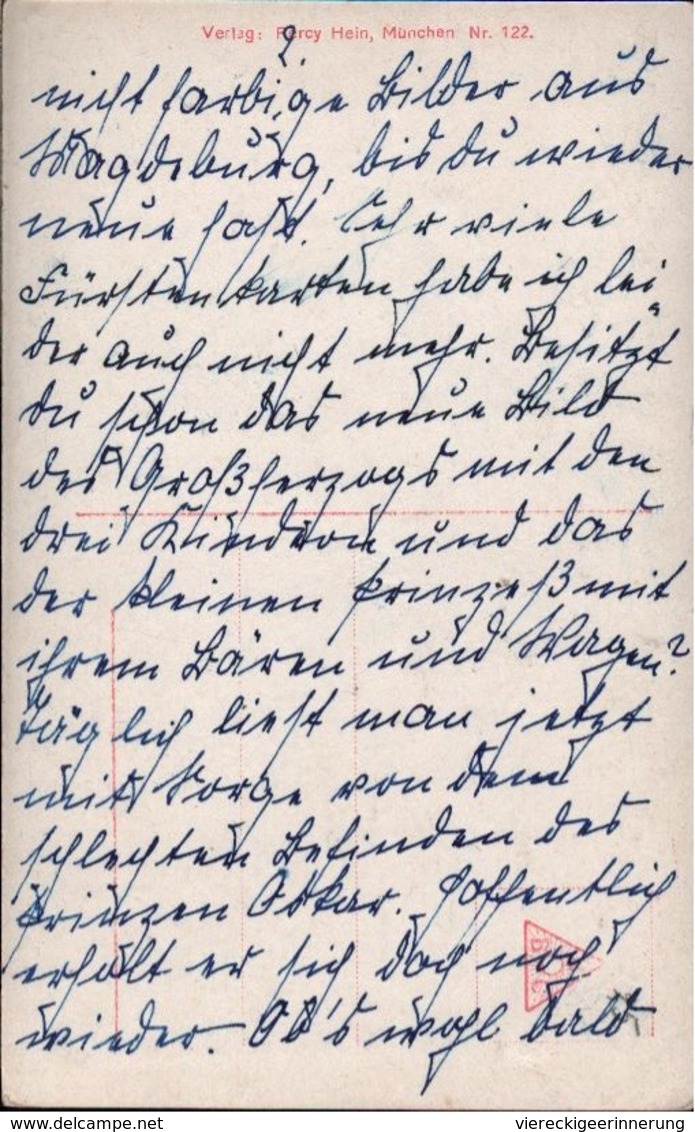 Verlag: Percy Hein, München Nr. 122.
2
nicht farbige Bilder aus
Magdeburg, bis du wieder
neue hast. Sehr viele
Fürstenkarten habe ich lei„
der auch nicht mehr. Besitzt
du schon das neue Bild
des Großherzogs mit den
drei Kindern und das
der kleinen Prinzeß mit
ihrem Bären und Wagen?
Täglich liest man jetzt
mit Sorge von dem
schlechten Befinden des
Prinzen Oskar. Hoffentlich
erholt er sich doch noch
wieder. Ob's wohl bald
delcampe.net
viereckigeerinnerung